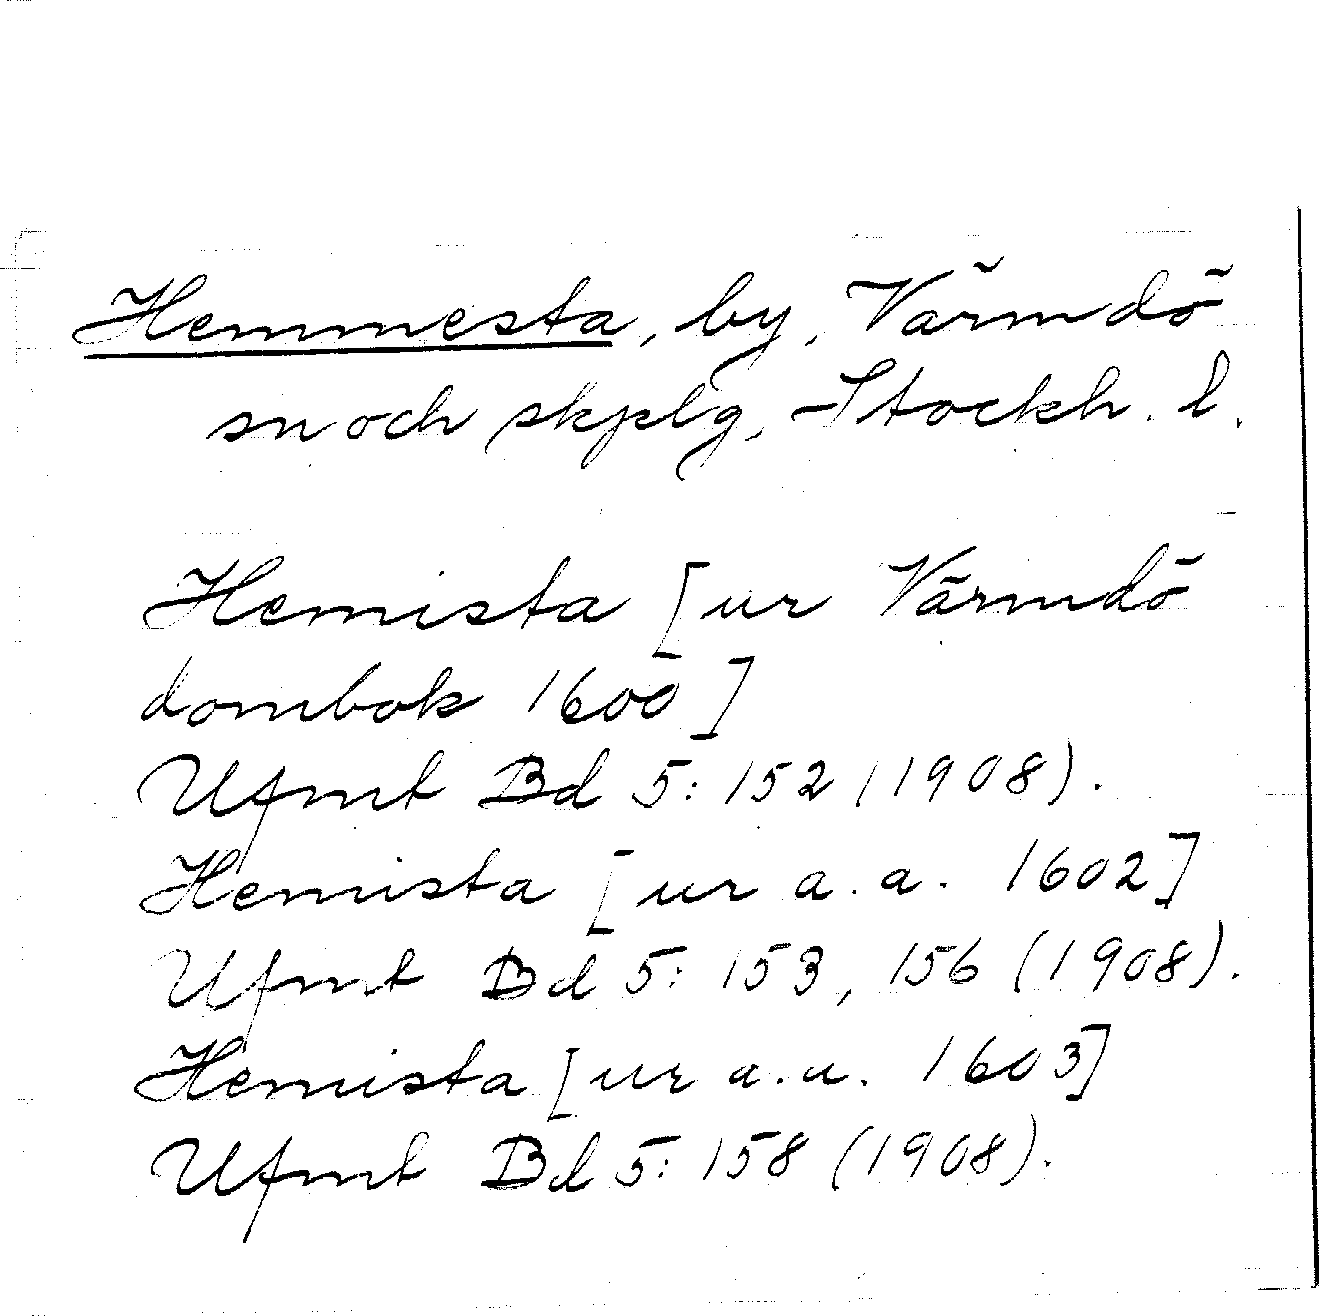 Hemmesta, by, Värmdö
sn och skplg, Stockh. l.
Hemista [ur Värmdö
dombok 1600]
Ufmt Bd 5: 152 (1908).
Hemista [ur a.a. 1602]
Ufmt Bd 5: 153, 156 (1908).
Hemista [ur a.a. 1603]
Ufmt Bd 5: 158 (1908).